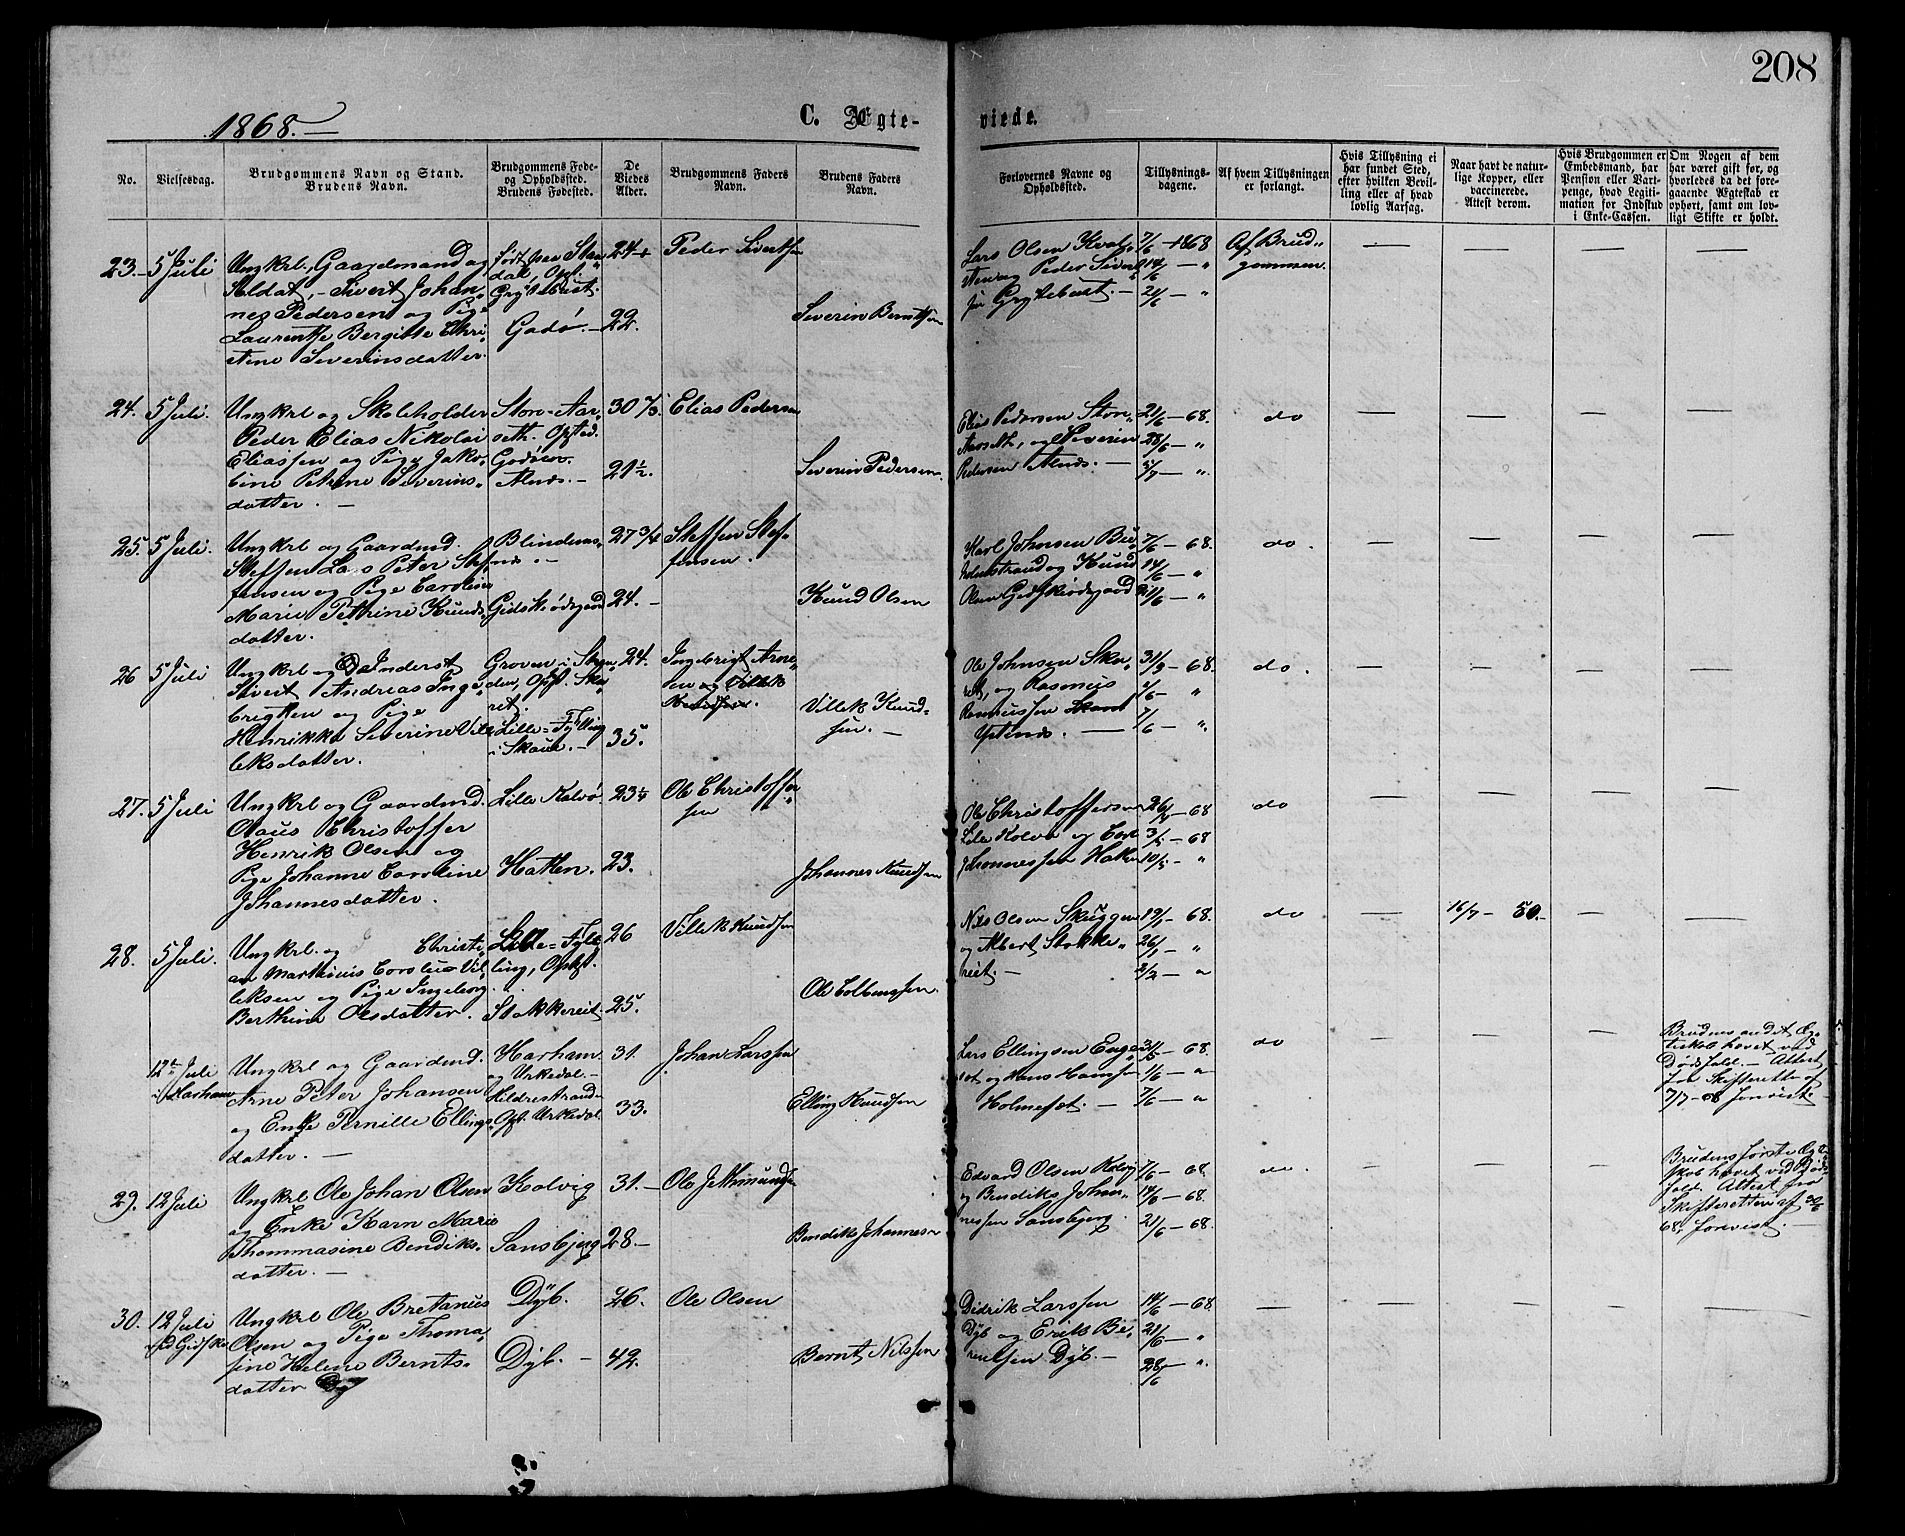 208
1868.—
C. Ægte-
viede.
No.
Vielsesdag.
Brudgommens Navn og Stand.
Brudens Navn.
Brudgommens Føde-
og Opholdssted.
Brudens Fødested.
De
Viedes
Alder.
Brudgommens Faders
Navn.
Brudens Faders
Navn.
Forlovernes Navne og
Opholdssted.
Tillysnings-
dagene.
Af hvem Tillysningen
er forlangt.
Hvis Tillysning ei
har fundet Sted,
efter hvilken Bevil-
ling eller af hvad
lovlig Aarsag.
Naar havt de natur-
lige Kopper, eller
vaccinerede.
Attest derom.
Hvis Brudgommen er
Embedsmand, har
Pension eller Vart-
penge, hvad Legiti-
mation for Indskud
i Enke-Cassen.
Om Nogen af dem
har været gift før, og
hvorledes da det fore-
gaaende Ægteskab er
ophørt, samt om lov-
ligt Skifte er holdt.
23.— 5 Juli
Ungkrl., Gaardmand og
Soldat, – Sivert Johan-
nes Pedersen og Pige
Laurentse Bergitte Chri-
stine Severinsdatter.
Grytebust.
Godø.—
24
22.
Peder Sivertsen
Severin Berntsen
Lars Olsen
og Peder Sivert-
sen Grytebust.—
7/6 – 1868
14/6 — "
21/6 — "
Af Brud-
gommen.
24. 5 Juli.
Ungkrl og Skoleholder
Peder Elias Nikolai
Eliassen og Pige Jako-
bine Petrine Severins-
datter. —
Store-Aar-
seth. Opsted.
Godøen.
Alnæs.—
30
21½.
Elias Pedersen
Severin Pedersen.
Elias Pedersen Store-
Aarseth, og Severin
Pedersen Alnæs.—
21/6 – 68.
28/6 — "
5/7 — "
do
25. 5 Juli.
Ungkrl og Gaardmd.
Steffen Lars Peter Stef-
fensen og Pige Caroline
Marie Pettrine Knuds-
datter.
Blindems-
næs.—
Gidskødegaard
27 3/4
24.—
Steffen Stef-
fensen.
Knud Olsen
Karl Johnsen
og Knud
Olsen Gidskødegaard
7/6 – 68.
14/6 — "
21/6 — "
do.
26 5 Juli
Ungkrl og Inderst
Sivert Andreas Inge-
brigtsen og Pige
Henrikke Severine Vil-
leksdatter.
Lille-Fylling
i Skoue.—
24.
35.
Ingebrigt Arne-
sen og Villek
Knudsen.
Villek Knud-
sen.—
Ole Johnsen
og Rasmus
Rasmussen
31/5 – 68.
1/6 – "
7/6 — "
do.
27. 5 Juli
Ungkrl og Gaardmd.
Olaus Christoffer
Henrik Olsen og
Pige Johanne Caroline
Johannesdatter.
Lille Kalvø.
Hatlen.
23½
23.
Ole Christoffer-
sen
Johannes Knudsen
Ole Christoffersen
Lille Kalvø og
Johannessen
26/4 – 68
3/5 – 68
10/5 – "
do
28. 5 Juli.
Ungkrl. og Christi-
an Marthinus Cornelius Vil-
leksen og Pige Ingeborg
Berthine Olsdatter.
Lille-Fyl-
ling, Opht.
Stokkereit.
26
25.
Villek Knudsen
Ole Colbensen.
Nils Olsen Skuggen
og Albert Stokke-
reit.—
19/1 – 68.
26/1 — "
2/2 — "
do
16/7 – 50.
12te Juli
i Harham
Ungkrl og Gaardmd.
Arne Peter Johansen
og Enke Pernille Ellings-
datter. —
Harham
og Urkedal.—
Hildrestrand-
Opt. Urkedal.
31.
33.
Johan Larssen
Elling Knudsen
Lars Ellingsen
og Hans Hansen
Holmeset.—
31/5 – 68.
1/6 — "
7/6 — "
do
Brudens andet Æg-
teskab hævet ved
Dødsfald.— Attest
fra Skifteretten af
7/7 – 68 forevist.
29. 12 Juli
Ungkrl Ole Johan Olsen
og Enke Karn Marie
Thommasine Bendiks-
datter.—
Kalvig
Sansbjerg
31.—
28.—
Ole
Bendik Johannesen
Edvard Olsen Kalvig
og Bendiks Johan-
nessen Sansbjerg.
7/6 – 68.
14/6 – 68.
21/6 – 68.
do.
Brudens første Ægte-
skab hævet ved Døds-
fald. Attest fra
Skifteretten af
68, forevist.—
30. 12 Juli
på Gidske
Ungkrl Ole Bretanus
Olsen og Pige Thoma-
sine Helene Bernts-
datter
Dyb.
Dyb.—
26.
42.
Ole Olsen
Bernt Nilssen
Didrik Larssen
Dyb og Erik Be-
rentsen Dyb.—
14/6 – 68
21/6 — "
28/6 — "